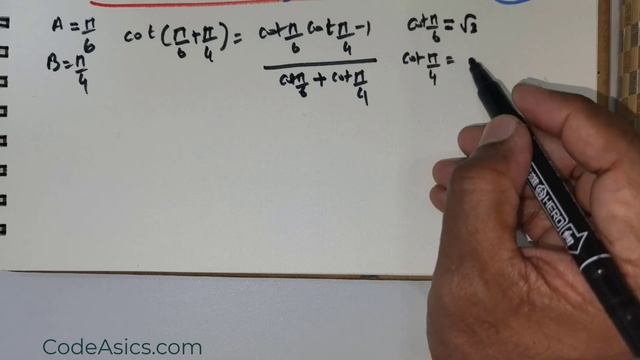 A = π/6
B = π/4
cot(π/6 + π/4) = (cot π/6 cot π/4 - 1)/(cot π/6 + cot π/4)
cot π/6 = √3
cot π/4 =
HERO
CodeAsics.com